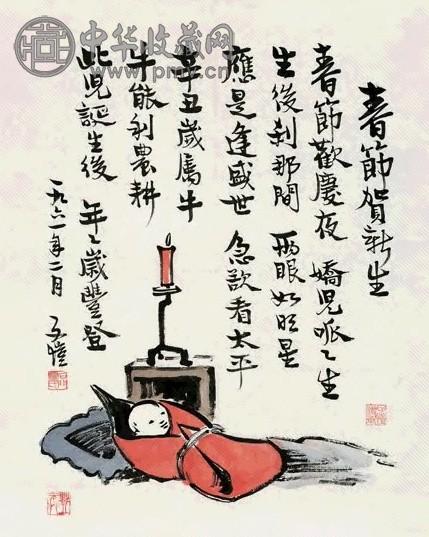 中华收藏网
春節賀新生
春節歡慶夜 嬌兒呱々生
生後刹那間 兩眼如明星
應是逢盛世 急欲看太平
辛丑歲屬牛
牛能利農耕
此兒誕生後 年々歲豐登
一九六一年二月 子愷